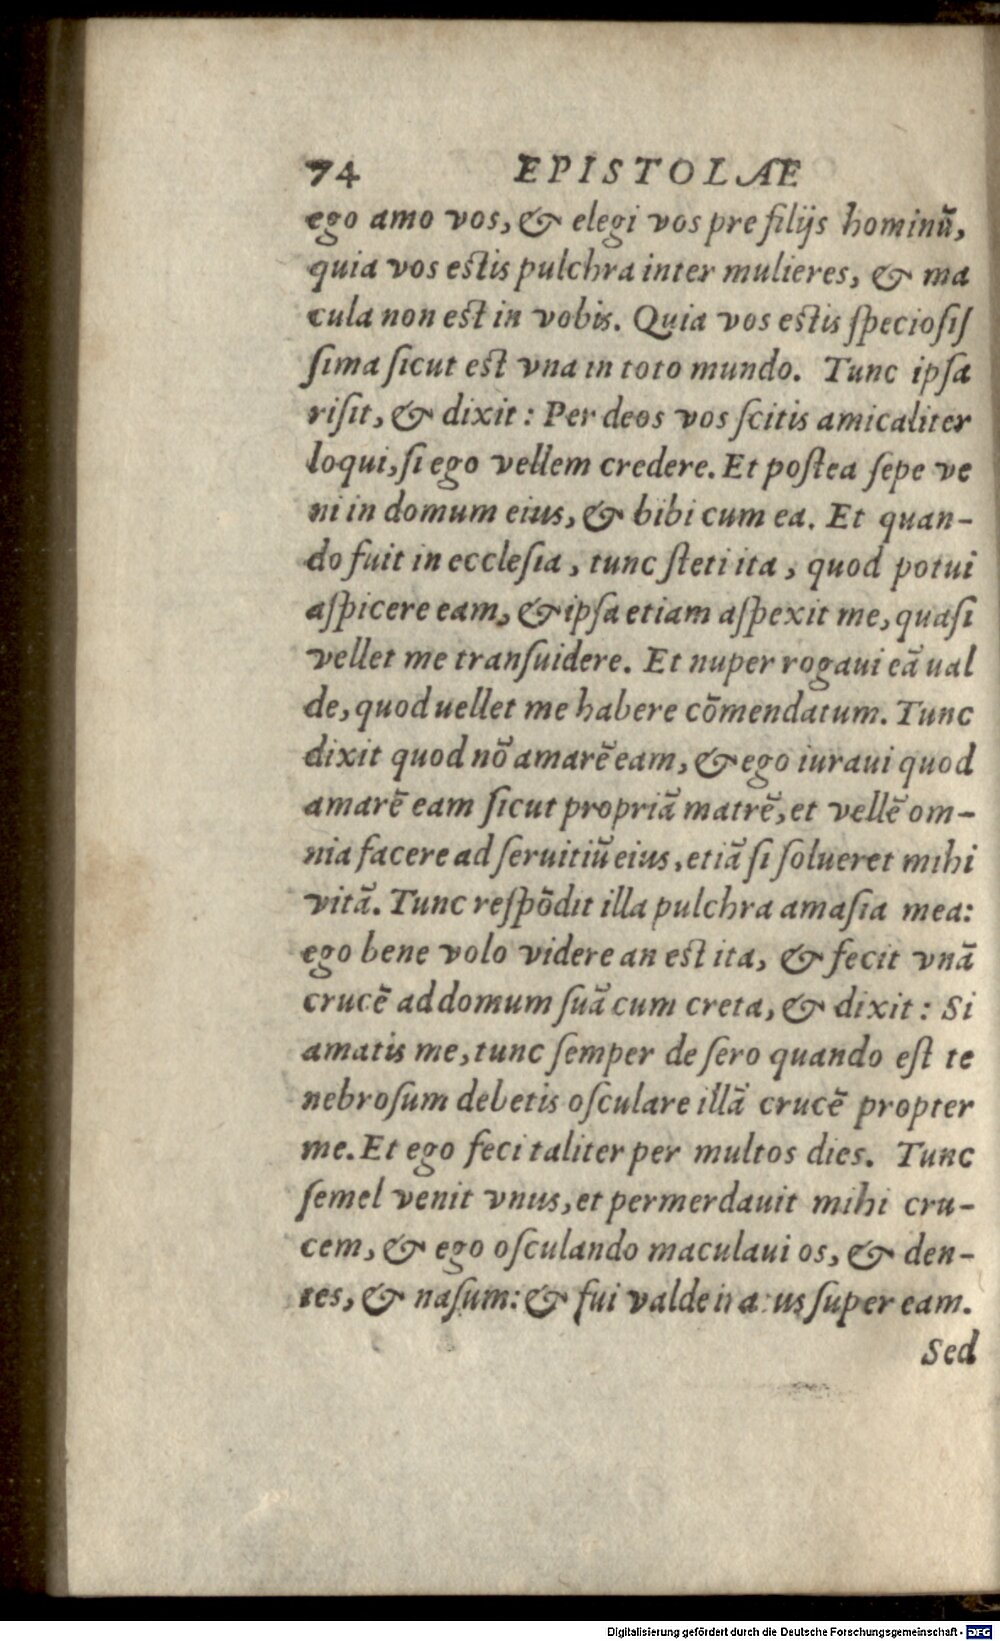 74 EPISTOLÆ
ego amo vos, & elegi vos pre filijs hominū,
quia vos estis pulchra inter mulieres, & ma
cula non est in vobis. Quia vos estis speciosis
sima sicut est vna in toto mundo. Tunc ipsa
risit, & dixit: Per deos vos scitis amicaliter
loqui, si ego vellem credere. Et postea sepe ve
ni in domum eius, & bibi cum ea. Et quan-
do fuit in ecclesia, tunc steti ita, quod potui
aspicere eam, & ipsa etiam aspexit me, quasi
vellet me transuidere. Et nuper rogaui eā ual
de, quod uellet me habere cōmendatum. Tunc
dixit quod nō amarē eam, & ego iuraui quod
amarē eam sicut propriā matrē, et vellē om-
nia facere ad seruitiū eius, etiā si solueret mihi
vitā. Tunc respōdit illa pulchra amasia mea:
ego bene volo videre an est ita, & fecit vnā
crucē ad domum suā cum creta, & dixit: Si
amatis me, tunc semper de sero quando est te
nebrosum debetis osculare illā crucē propter
me. Et ego feci taliter per multos dies. Tunc
semel venit vnus, et permerdauit mihi cru-
cem, & ego osculando maculaui os, & den-
tes, & nasum: & fui valde iratus super eam.
Sed
Digitalisierung gefördert durch die Deutsche Forschungsgemeinschaft - DFG